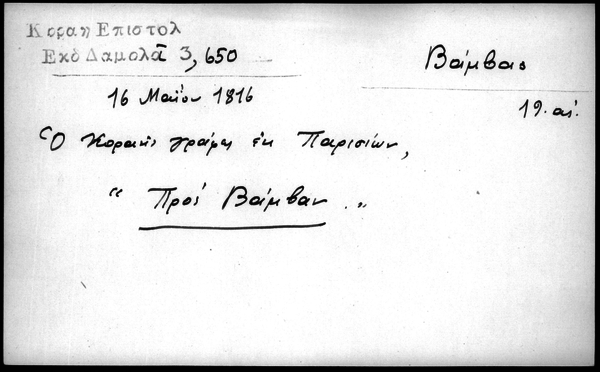 Κοραη Επιστολ
Εκδ Δαμαλᾶ 3, 650
Βάμβας
16 Μαΐου 1816
19. αἰ.
Ὁ Κοραῆς γράφει ἐκ Παρισίων,
" Πρὸς Βάμβαν . "